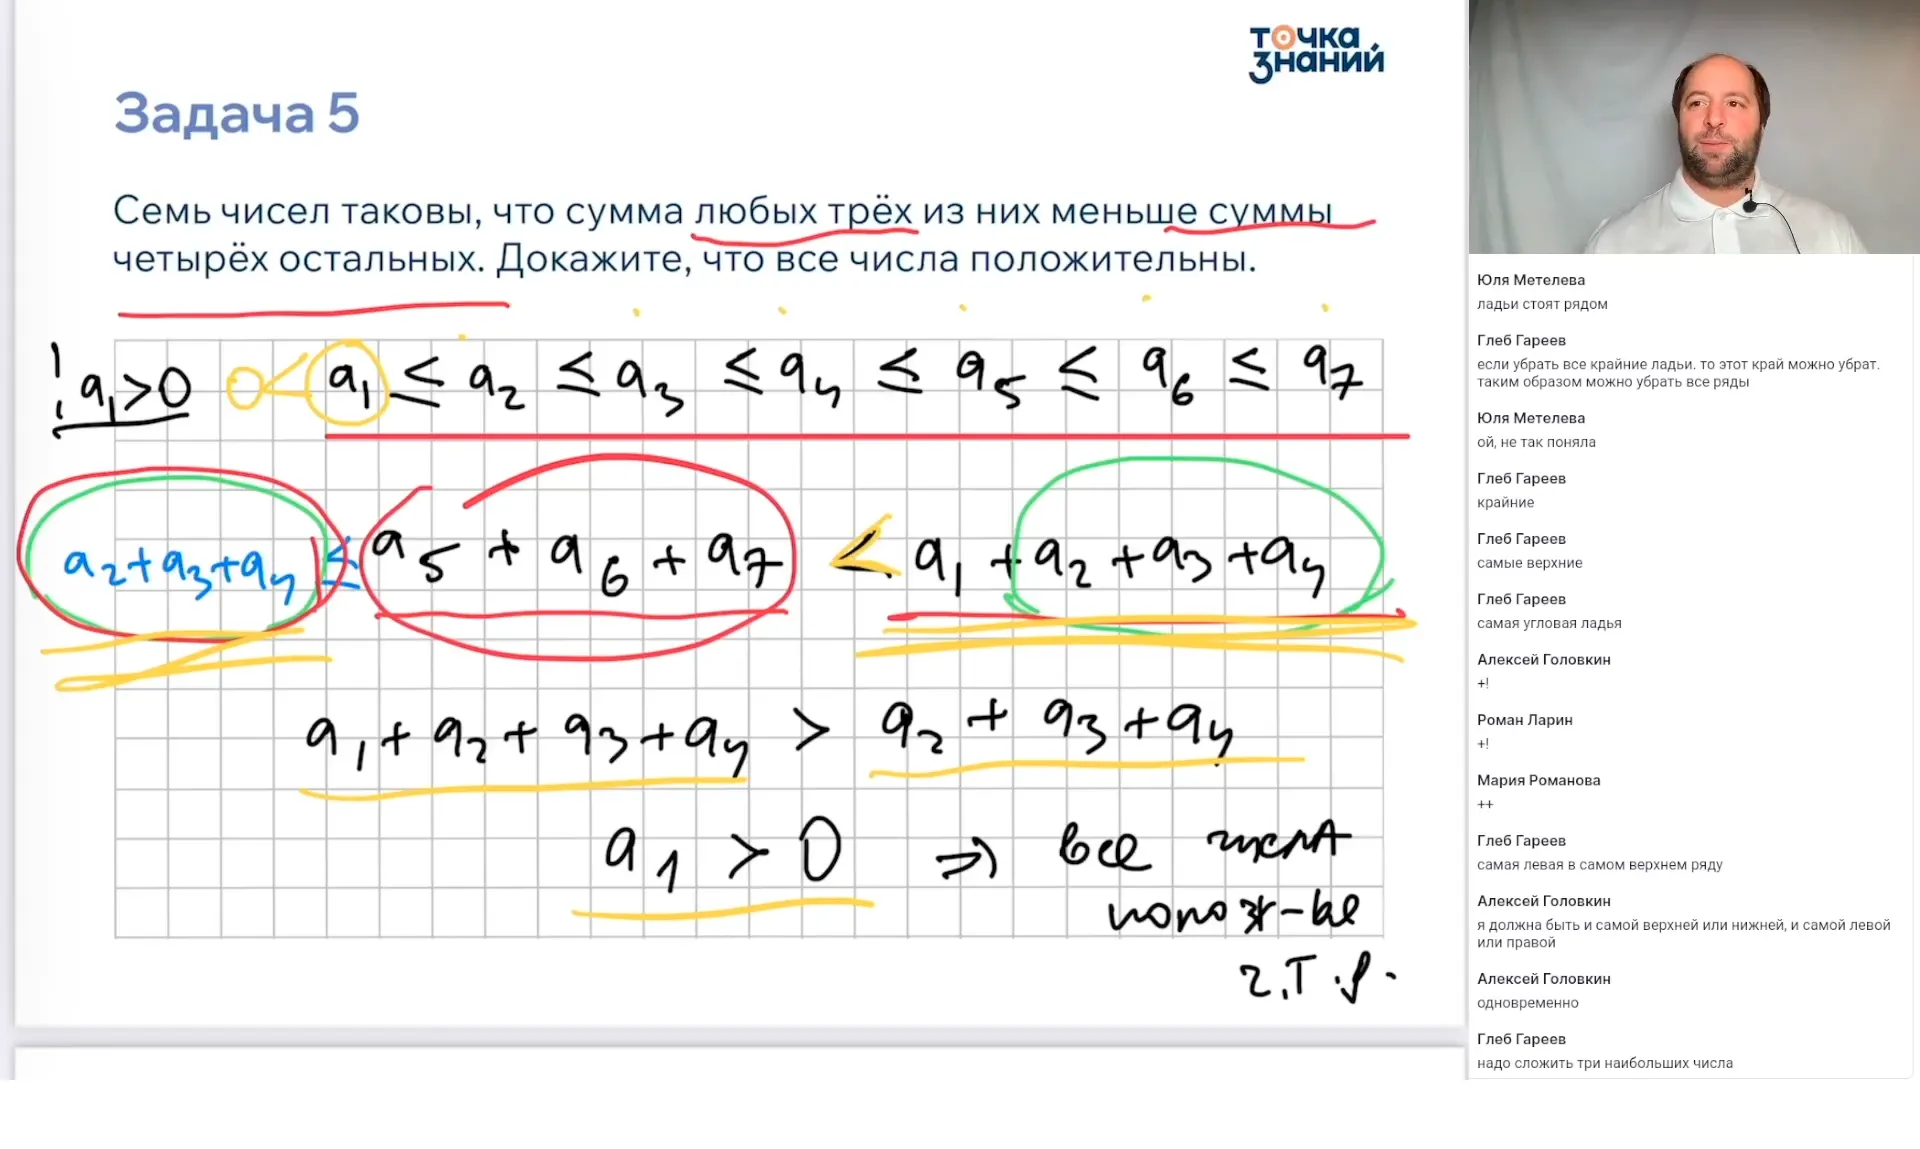 точка
знаний
Задача 5
Семь чисел таковы, что сумма любых трёх из них меньше суммы
четырёх остальных. Докажите, что все числа положительны.
! a₁>0 0< a₁ ≤ a₂ ≤ a₃ ≤ a₄ ≤ a₅ ≤ a₆ ≤ a₇
a₂+a₃+a₄ ≤ a₅ + a₆ + a₇ < a₁ + a₂ + a₃ + a₄
a₁ + a₂ + a₃ + a₄ > a₂ + a₃ + a₄
a₁ > 0 ⇒ все числа
полож-ые
ч.т.д.
Юля Метелева
ладьи стоят рядом
Глеб Гареев
если убрать все крайние ладьи. то этот край можно убрат.
таким образом можно убрать все ряды
Юля Метелева
ой, не так поняла
Глеб Гареев
крайние
Глеб Гареев
самые верхние
Глеб Гареев
самая угловая ладья
Алексей Головкин
+!
Роман Ларин
+!
Мария Романова
++
Глеб Гареев
самая левая в самом верхнем ряду
Алексей Головкин
я должна быть и самой верхней или нижней, и самой левой
или правой
Алексей Головкин
одновременно
Глеб Гареев
надо сложить три наибольших числа